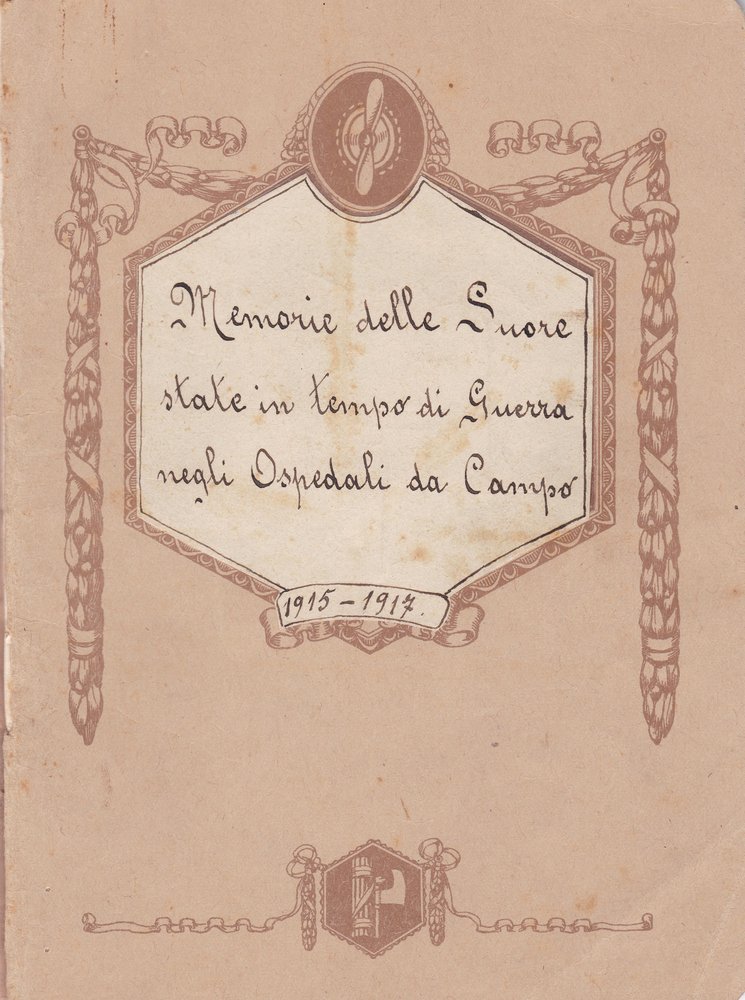 Memorie delle Suore
state in tempo di Guerra
negli Ospedali da Campo
1915-1917.